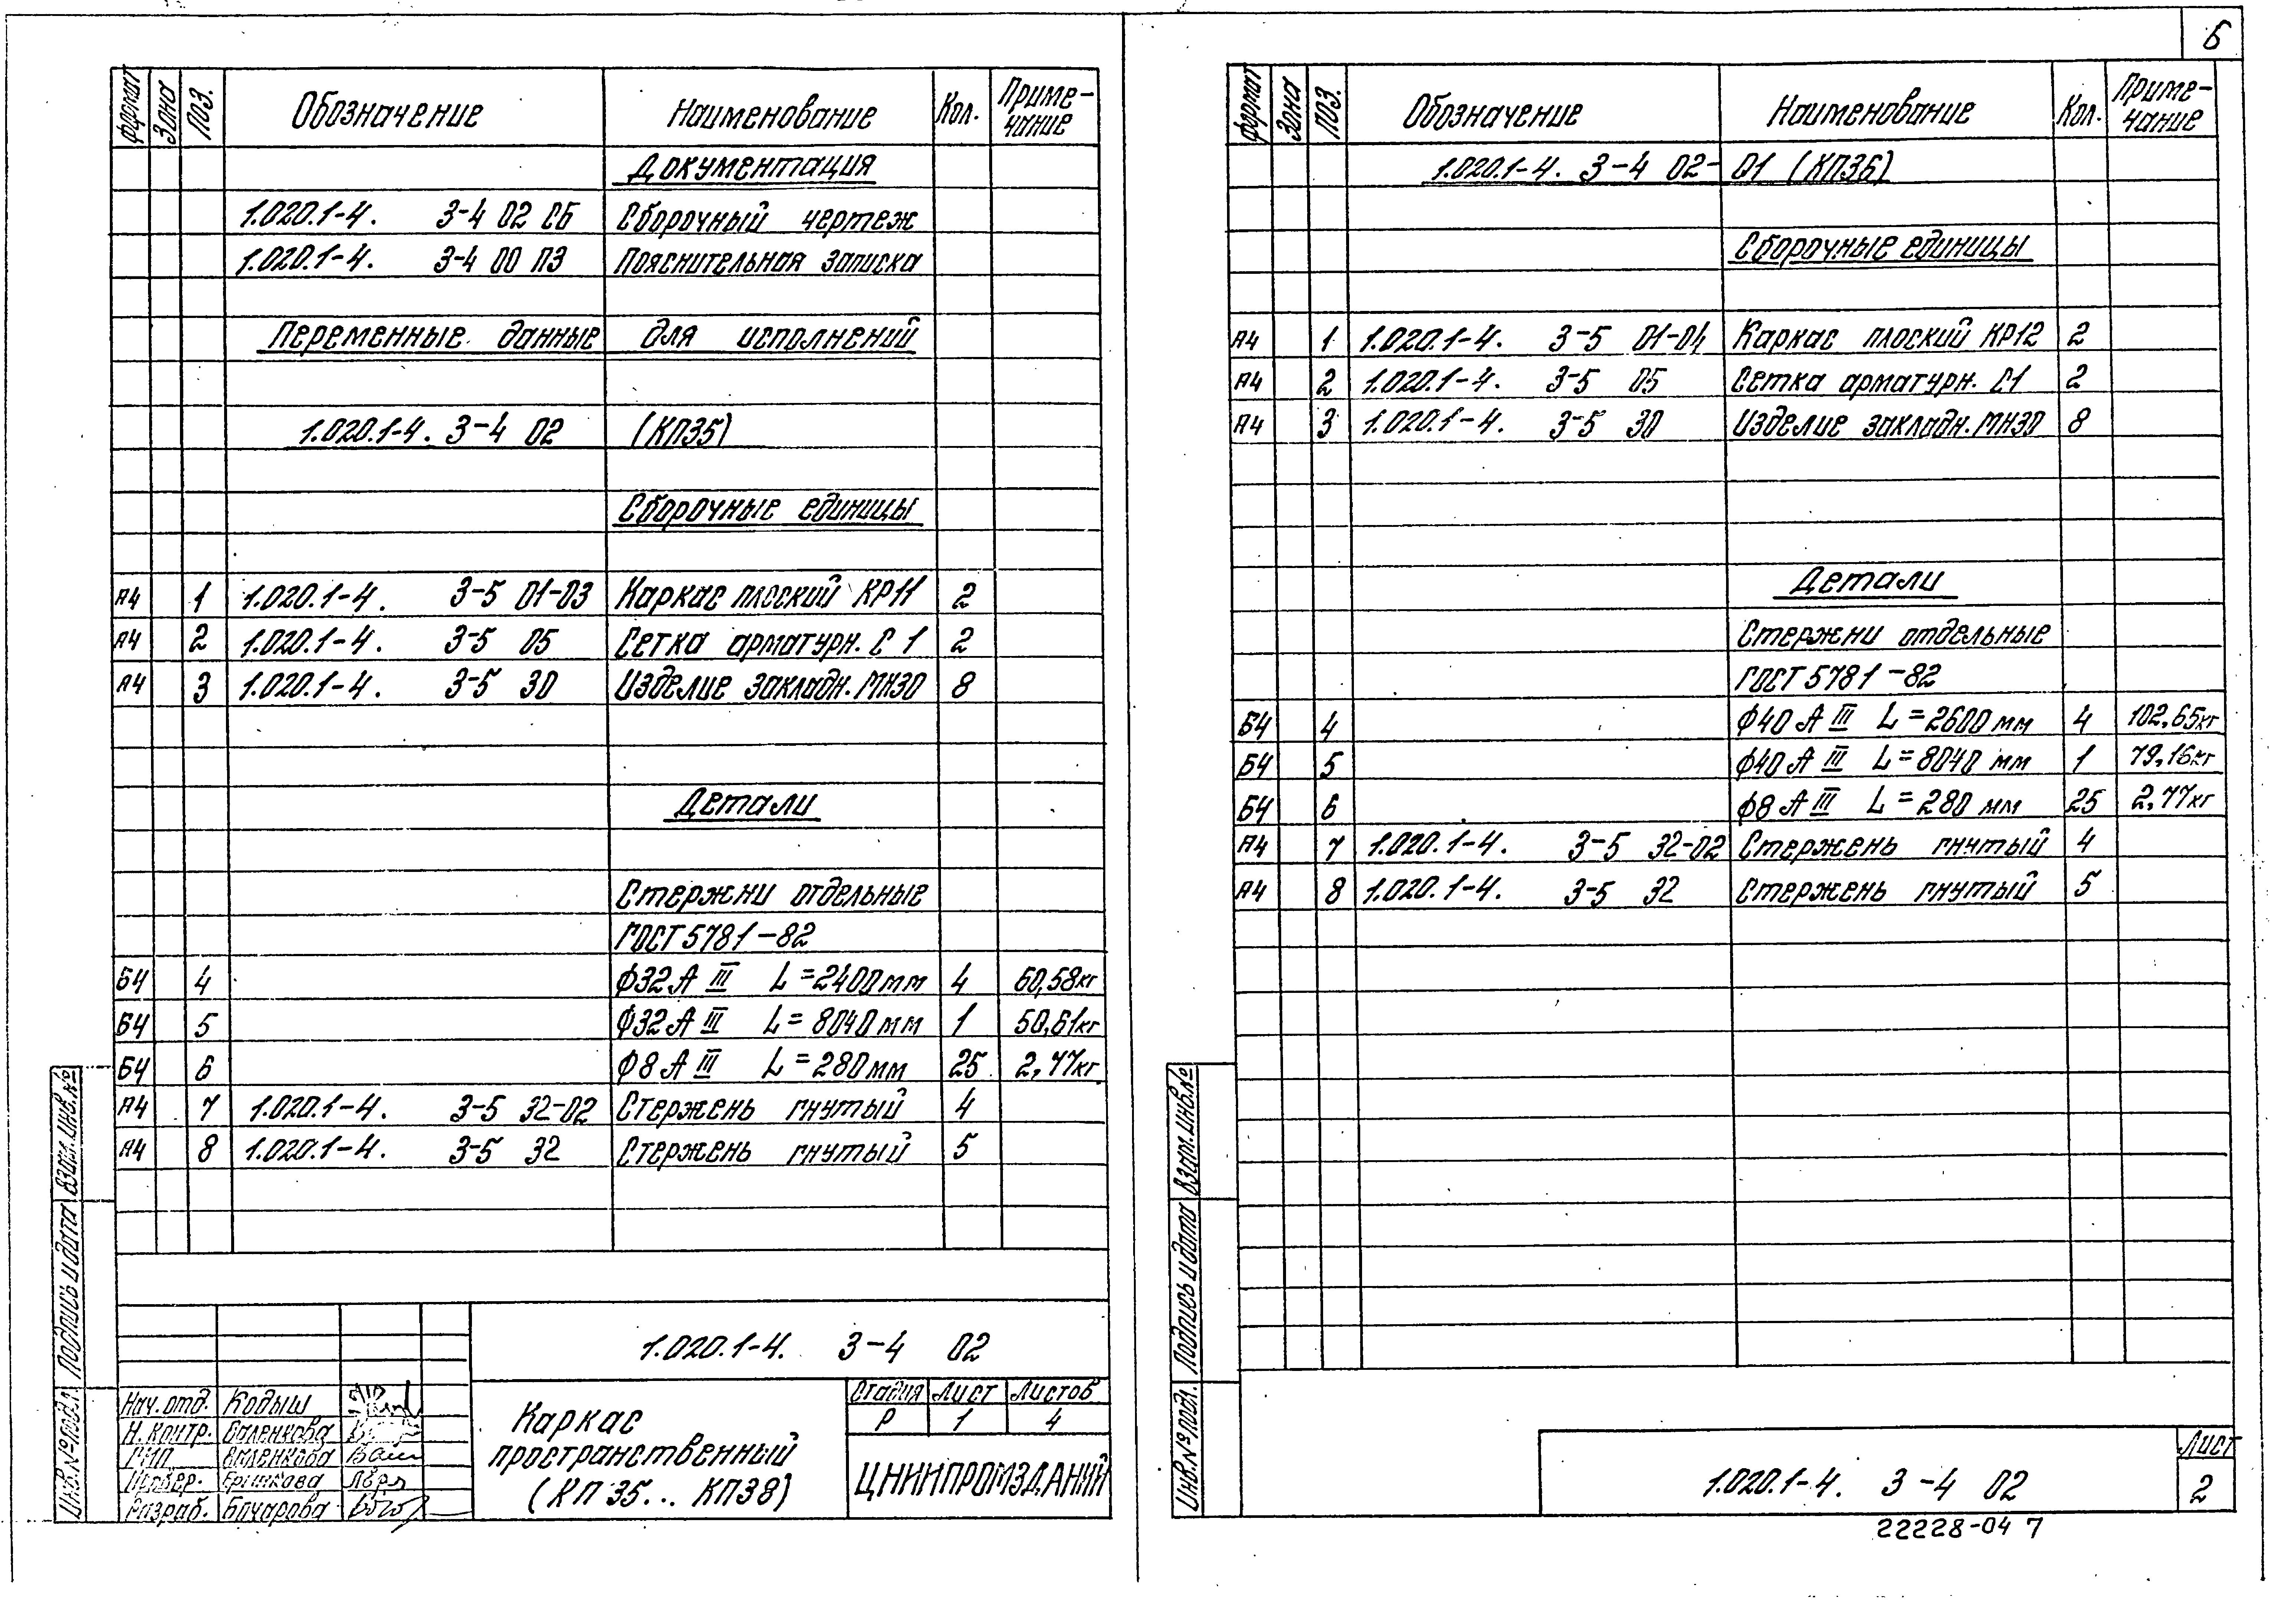 Формат Зона Поз. Обозначение Наименование Кол. Приме-чание
Документация
1.020.1-4. 3-4 02 СБ Сборочный чертеж
1.020.1-4. 3-4 00 ПЗ Пояснительная записка
Переменные данные для исполнений
1.020.1-4. 3-4 02 (КП35)
Сборочные единицы
А4 1 1.020.1-4. 3-5 01-03 Каркас плоский КР11 2
А4 2 1.020.1-4. 3-5 05 Сетка арматурн. С 1 2
А4 3 1.020.1-4. 3-5 30 Изделие закладн. МН30 8
Детали
Стержни отдельные
ГОСТ 5781-82
Б4 4 ϕ32 А III L=2400мм 4 60,58кг
Б4 5 ϕ32 А III L=8040мм 1 50,61кг
Б4 6 ϕ8 А III L=280мм 25 2,77кг
А4 7 1.020.1-4. 3-5 32-02 Стержень гнутый 4
А4 8 1.020.1-4. 3-5 32 Стержень гнутый 5
Инв.№ подл. Подпись и дата Взам.инв.№
1.020.1-4. 3-4 02
Нач. отд. Кодыш
Н. контр. Валенкова
ГИП Валенкова
Провер. Ершкова
Разраб. Бочарова
Каркас
пространственный
(КП 35... КП38)
Стадия Лист Листов
Р 1 4
ЦНИИПРОМЗДАНИЙ
6
Формат Зона Поз. Обозначение Наименование Кол. Приме-чание
1.020.1-4. 3-4 02-01 (КП36)
Сборочные единицы
А4 1 1.020.1-4. 3-5 01-04 Каркас плоский КР12 2
А4 2 1.020.1-4. 3-5 05 Сетка арматурн. С1 2
А4 3 1.020.1-4. 3-5 30 Изделие закладн. МН30 8
Детали
Стержни отдельные
ГОСТ 5781-82
Б4 4 ϕ40 А III L=2600 мм 4 102,65кг
Б4 5 ϕ40 А III L=8040 мм 1 79,16кг
Б4 6 ϕ8 А III L=280 мм 25 2,77кг
А4 7 1.020.1-4. 3-5 32-02 Стержень гнутый 4
А4 8 1.020.1-4. 3-5 32 Стержень гнутый 5
Инв.№ подл. Подпись и дата Взам.инв.№
1.020.1-4. 3-4 02
Лист
2
22228-04 7